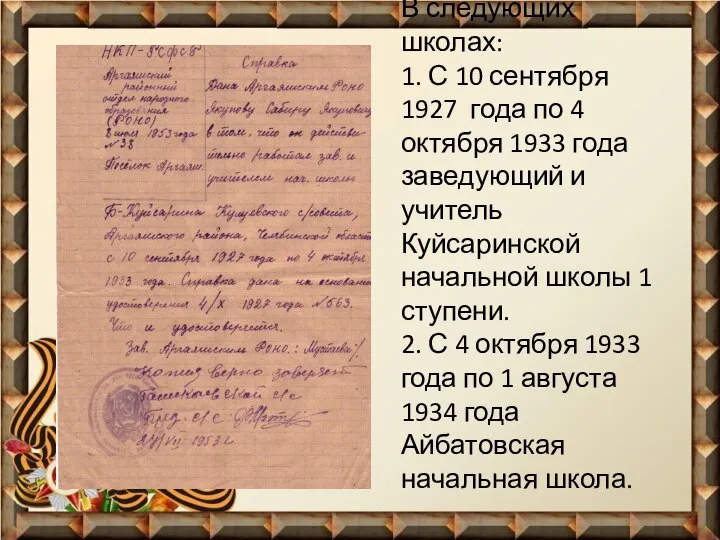 НКП-РСФСР
Аргаяшский
районный
отдел народного
образования
(РОНО)
8 июля 1953 года
№ 38
Посёлок Аргаяш.
Справка
Дана Аргаяшским Роно
Якупову Сабиру Якуповичу
в том, что он действи-
тельно работал зав. и
учителем нач. школы
Б-Куйсарина Кулуевского с/совета,
Аргаяшского района, Челябинской области
с 10 сентября 1927 года по 4 октября
1933 года. Справка дана на основании
удостоверения 4/X 1927 года № 563.
Что и удостоверяется.
Зав. Аргаяшским Роно.: Мустаева:/
Копия верно заверяет
с/с
Пред. с/с:
VII 1953 г
В следующих
школах:
1. С 10 сентября
1927 года по 4
октября 1933 года
заведующий и
учитель
Куйсаринской
начальной школы 1
ступени.
2. С 4 октября 1933
года по 1 августа
1934 года
Айбатовская
начальная школа.